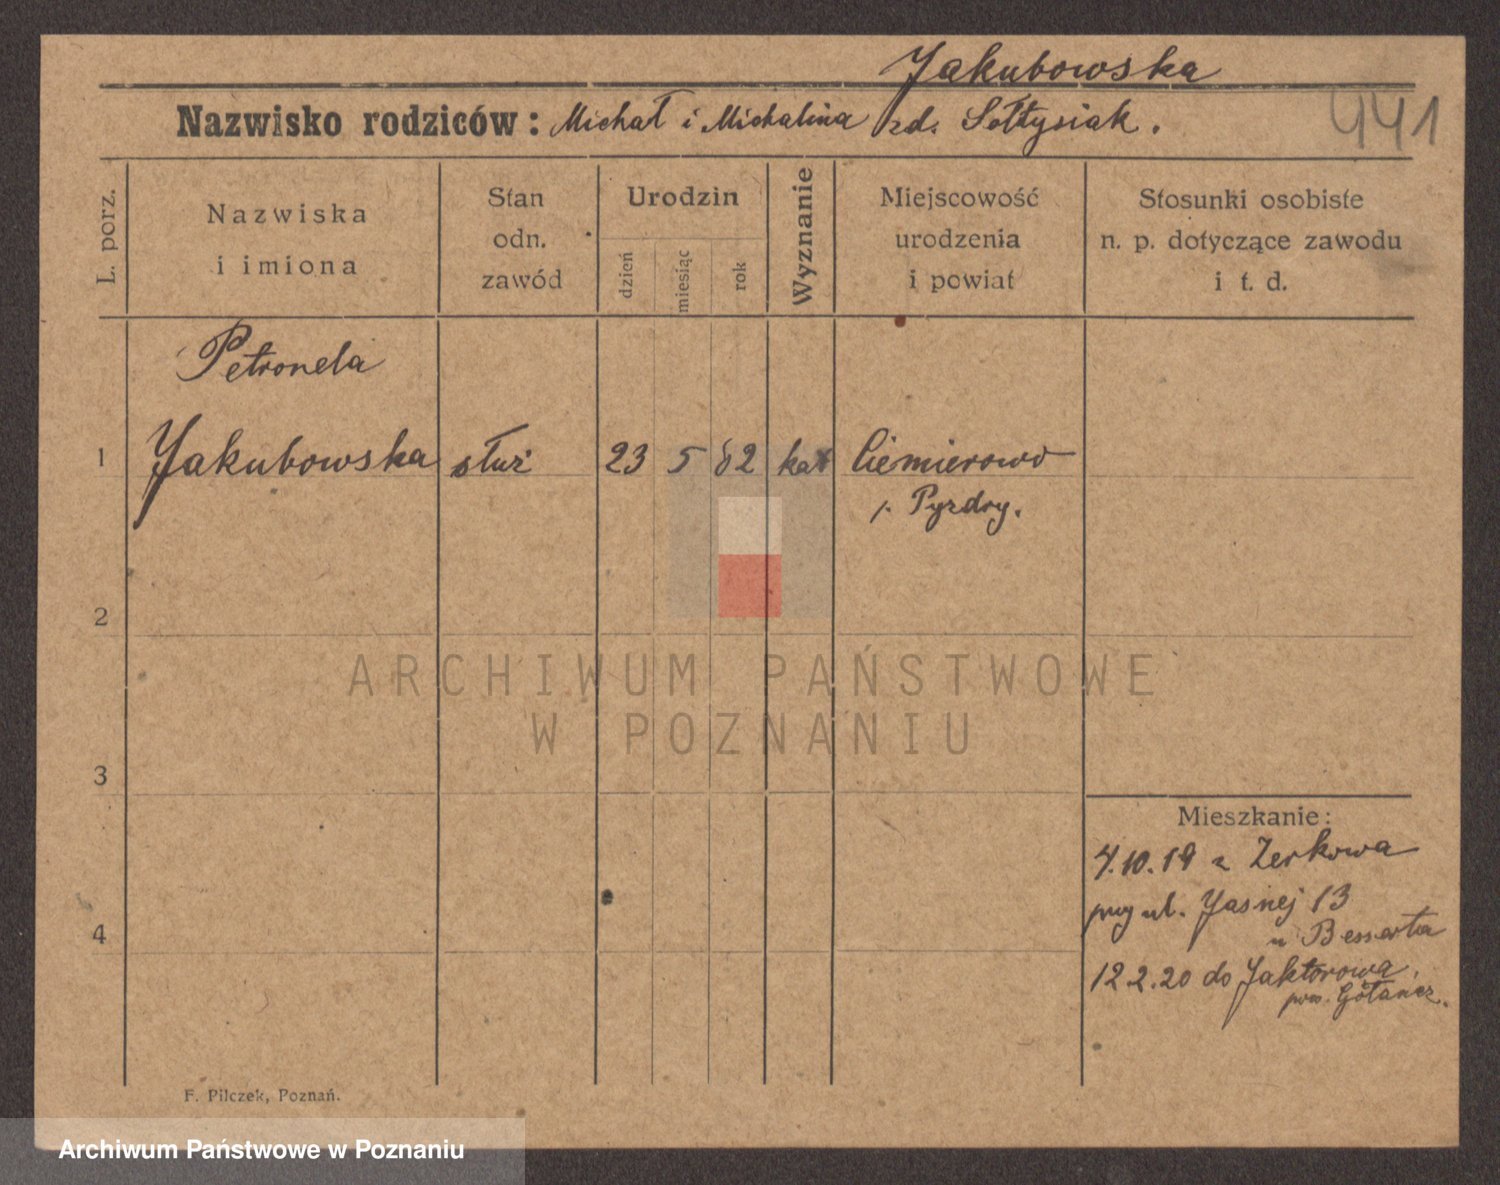 Jakubowska
Nazwisko rodziców: Michał i Michalina zd. Sołtysiak.
441
L. porz.
Nazwiska
i imiona
Stan
odn.
zawód
Urodzin
dzień
miesiąc
rok
Wyznanie
Miejscowość
urodzenia
i powiat
Stosunki osobiste
n. p. dotyczące zawodu
i t. d.
Petronela
1 Jakubowska służ 23 5 82 kat Ciemierowo
p. Pyzdry.
2
ARCHIWUM PAŃSTWOWE
W POZNANIU
3
Mieszkanie:
4.10.19 z Zerkowa
przy ul. Jasnej 13
u Besserta
4
12.2.20 do Jaktorowa,
pow. Gołańcz.
F. Pilczek, Poznań.
Archiwum Państwowe w Poznaniu